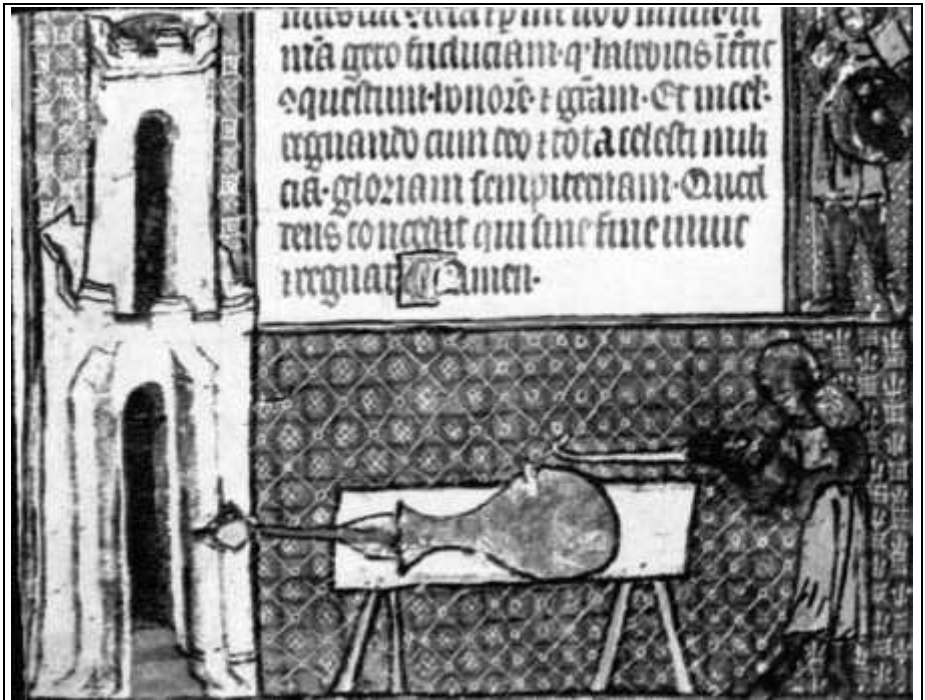 gero fiduciam·q' habebitis
honorē·⁊ grām·Et in cel
regnando cum deo ⁊ tota celesti mili
cia·gloriam sempiternam·Quod
deus concedat qui sine fine uiuit
⁊ regnat Amen·